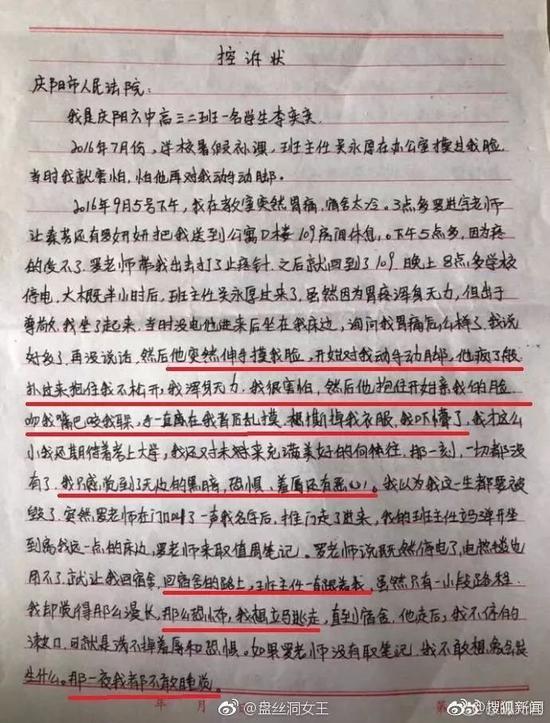 控诉状
庆阳市人民法院:
我是庆阳六中高三二班一名学生李奕奕
2016年7月份,学校暑假补课,班主任吴永厚在办公室摸过我脸
当时我就害怕,怕他再对我动手动脚。
2016年9月5号下午,我在教室突然胃痛,宿舍太冷。3点多罗进宇老师
让秦芳还有罗妍妍把我送到公寓D楼109房间休息。下午5点多,因为疼
的受不了,罗老师带我出去打了止疼针,之后就回到了109,晚上8点多学校
停电,大概半小时后,班主任吴永厚过来了,虽然因为胃疼浑身无力,但出于
尊敬我坐了起来,当时没电他进来后坐在我床边,询问我胃痛怎么样了,我说
好多了,再没说话,然后他突然伸手摸我脸,开始对我动手动脚,他疯了般
扑过来抱住我不松开,我浑身无力,我很害怕,然后他抱住开始亲我的脸
吻我嘴巴咬我耳朵,手一直在我背后乱摸,想撕掉我衣服,我吓懵了,我才这么
小我还期待着考上大学,我还对未来充满美好的向往,那一刻,一切都没
有了,我只感觉到了无边的黑暗,恐惧、羞辱还有恶心!。我以为我这一生都要被
毁了,突然罗老师在门口叫了一声我名字后,推门走了进来,我的班主任立马弹开坐
到离我远一点的床边,罗老师来取值周笔记。罗老师说既然停电了,电热毯也
用不了,就让我回宿舍,回宿舍的路上,班主任一直跟着我,虽然只有一小段路程
我却觉得那么漫长,那么恐怖,我想立马逃走,直到宿舍,他走后,我不停的
漱口,可就是洗不掉羞辱和恐惧。如果罗老师没有取笔记,我不敢想象会发
生什么。那一夜我都不敢睡觉。
年 月 日
第
@盘丝洞女王
@搜狐新闻